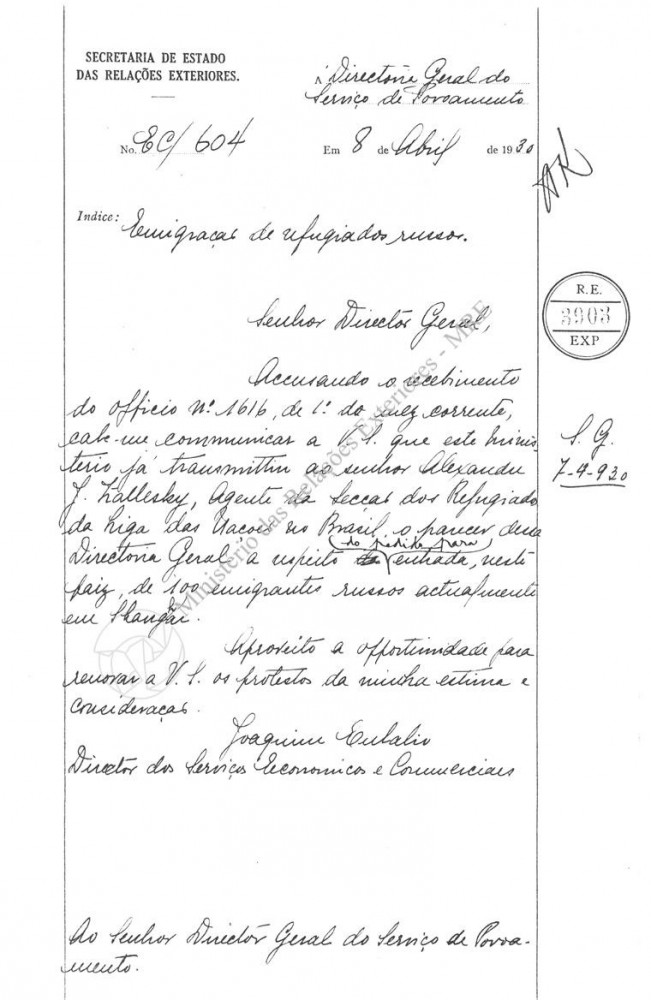 SECRETARIA DE ESTADO
DAS RELAÇÕES EXTERIORES.
À Directoria Geral do
Serviço de Povoamento
No. EC/604
Em 8 de Abril de 1930
Indice: Emigração de refugiados russos.
R. E.
3903
EXP
Senhor Director Geral,
Accusando o recebimento
do officio Nº 1616, de 1º do mez corrente,
cabe-me communicar a V. S. que este Minis-
terio já transmittiu ao senhor Alexandre
J. Zallesky, Agente da Secção dos Refugiados
da Liga das Nações no Brasil, o parecer dessa
do pedido para
Directoria Geral a respeito entrada, neste
paiz, de 100 emigrantes russos actualmente
em Shangai.
S. G.
7-4-930
Aproveito a opportunidade para
renovar a V. S. os protestos da minha estima e
consideração.
Joaquim Eulalio
Director dos Serviços Economicos e Commerciaes
Ao Senhor Director Geral do Serviço de Povoa-
mento.
Ministério das Relações Exteriores - MRE